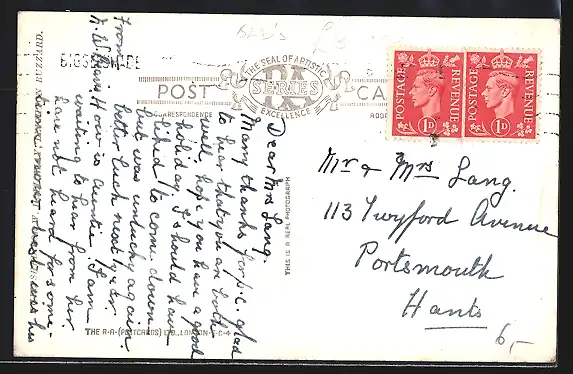 BAL'S
£3
THE SEAL OF ARTISTIC
RA
SERIES
EXCELLENCE
POST
CA
CORRESPONDENCE
ADD
POSTAGE REVENUE
1D
POSTAGE REVENUE
1D
Mr & Mrs Lang.
113 Twyford Avenue
Portsmouth
Hants
6,-
THIS IS A REAL PHOTOGRAPH
THE R.A. (POSTCARDS) LTD., LONDON. E.C.4
Dear Mrs Lang
Many thanks for p.c. glad
to hear that you are both
well, hope you have a good
holiday. I should have
liked to come down
but was unlucky again
better luck next year.
How is Auntie. I am
waiting to hear from her
have not heard for some-
From